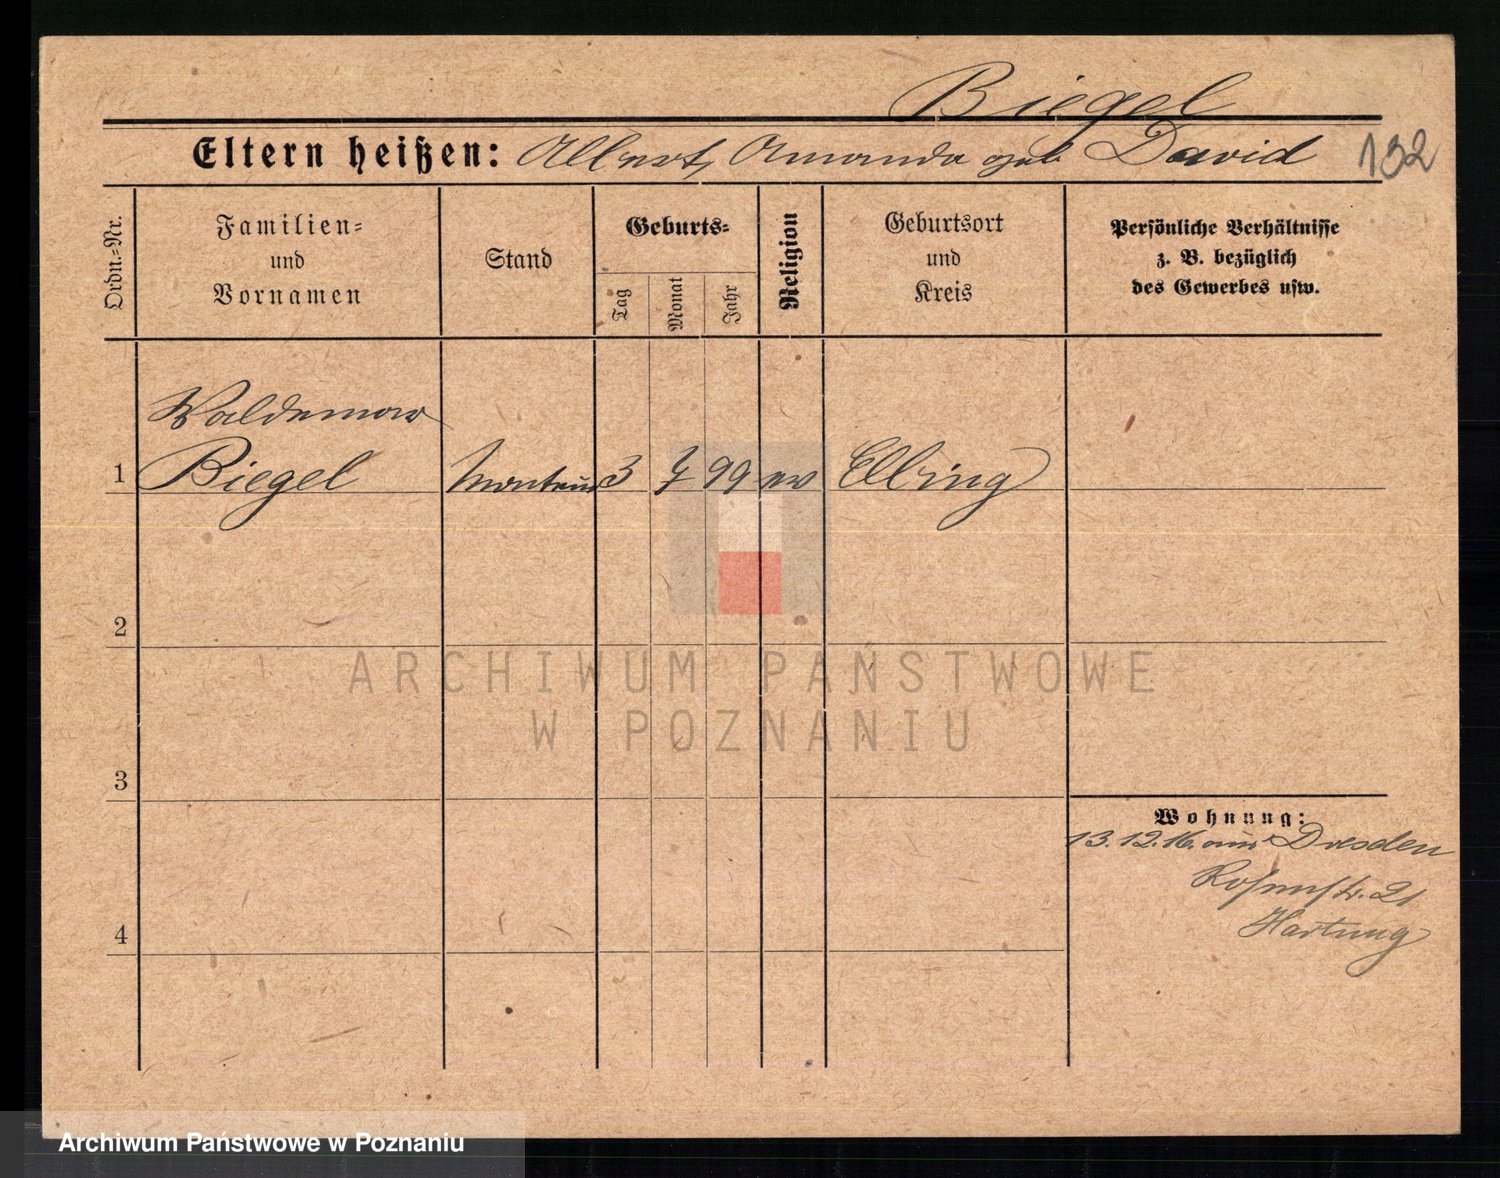 Biegel
Eltern heißen: Albert, Amanda geb David
132
Ordn.=Nr.
Familien=
und
Vornamen
Stand
Geburts=
Tag
Monat
Jahr
Religion
Geburtsort
und
Kreis
Persönliche Verhältnisse
z. B. bezüglich
des Gewerbes usw.
Waldemar
1 Biegel Monteur 3 7 99 ev Elbing
2
ARCHIWUM PAŃSTWOWE
W POZNANIU
3
Wohnung:
13.12.16. aus Dresden
Rosenstr. 21
Hartung
4
Archiwum Państwowe w Poznaniu